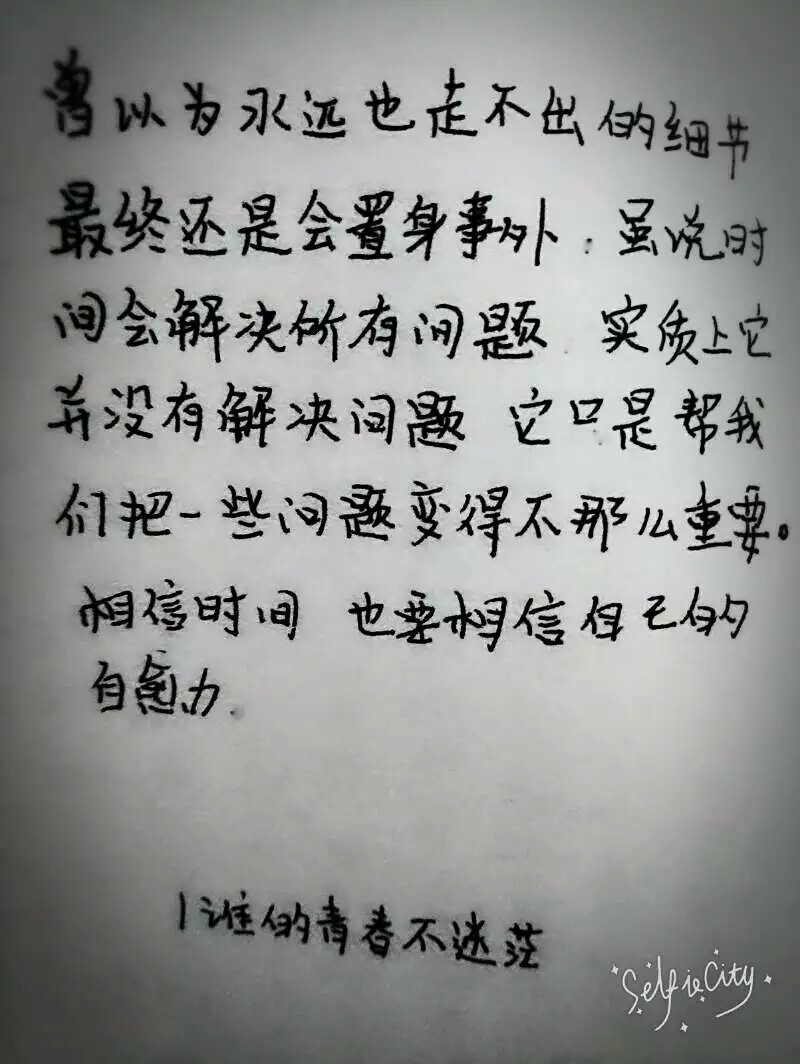 曾以为永远也走不出的细节
最终还是会置身事外.虽说时
间会解决所有问题 实质上它
并没有解决问题 它只是帮我
们把一些问题变得不那么重要。
相信时间 也要相信自己的
自愈力.
|谁的青春不迷茫
Selfie City